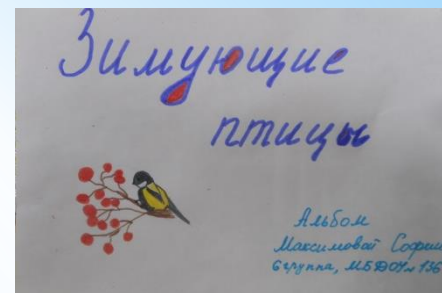 Зимующие
птицы
Альбом
Максимовой Софии
6 группа, МБДОУ № 136